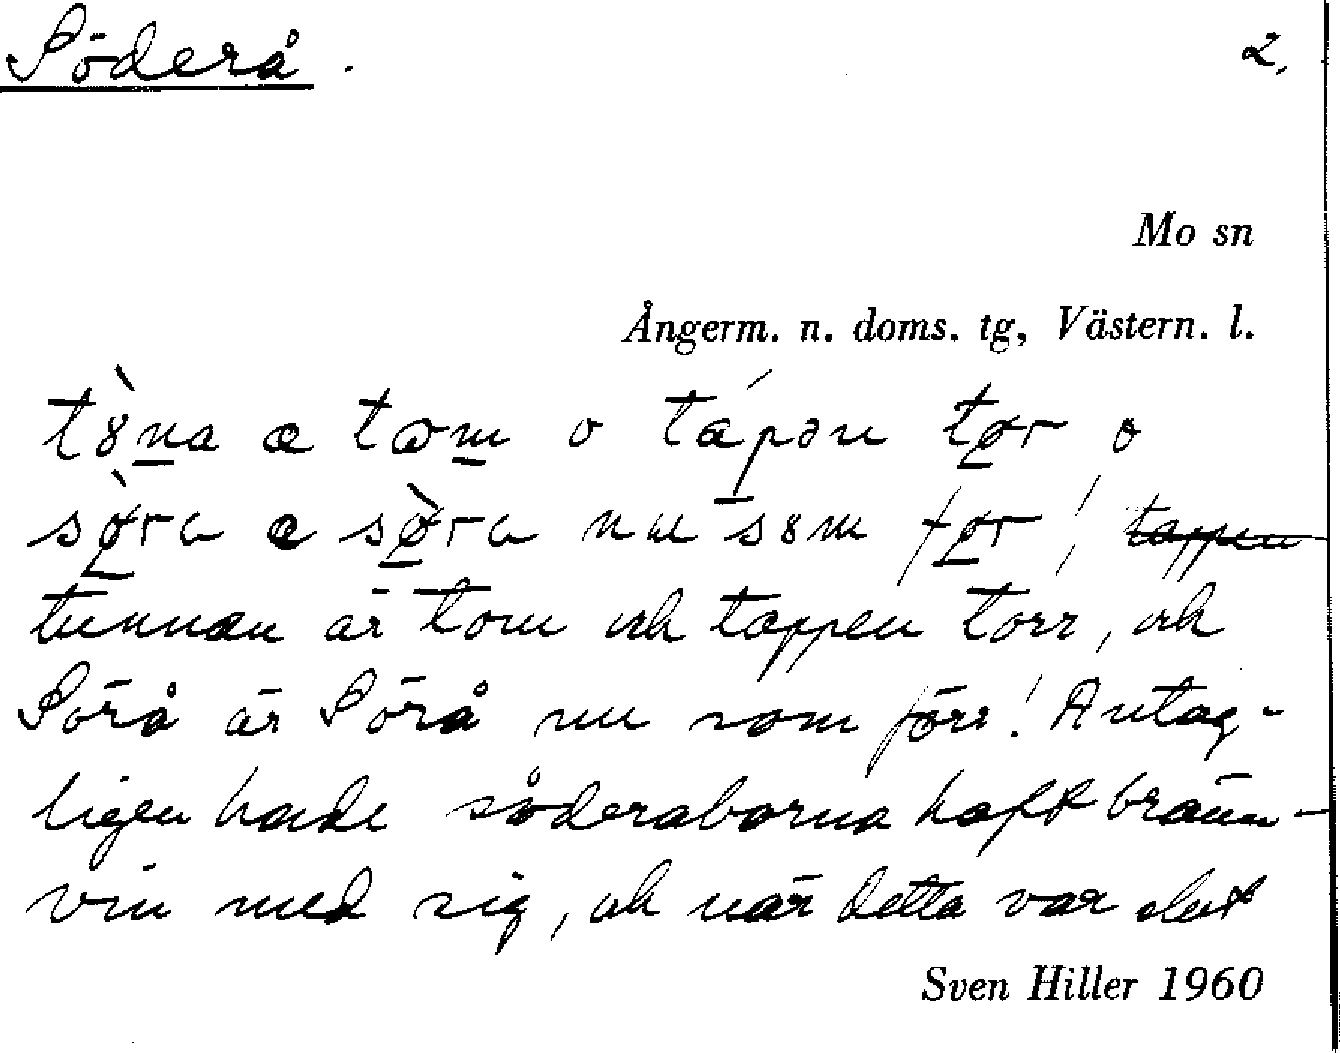 Söderå. 2.
Mo sn
Ångerm. n. doms. tg, Västern. l.
tȣ̀na æ tom o tápən tør o
sø̀ra æ sø̀ra nu sȣm før! ~~tappen~~
tunnan är tom och tappen torr, och
Sörå är Sörå nu som förr! Antag-
ligen hade söderåborna haft bränn-
vin med sig, och när detta var slut
Sven Hiller 1960